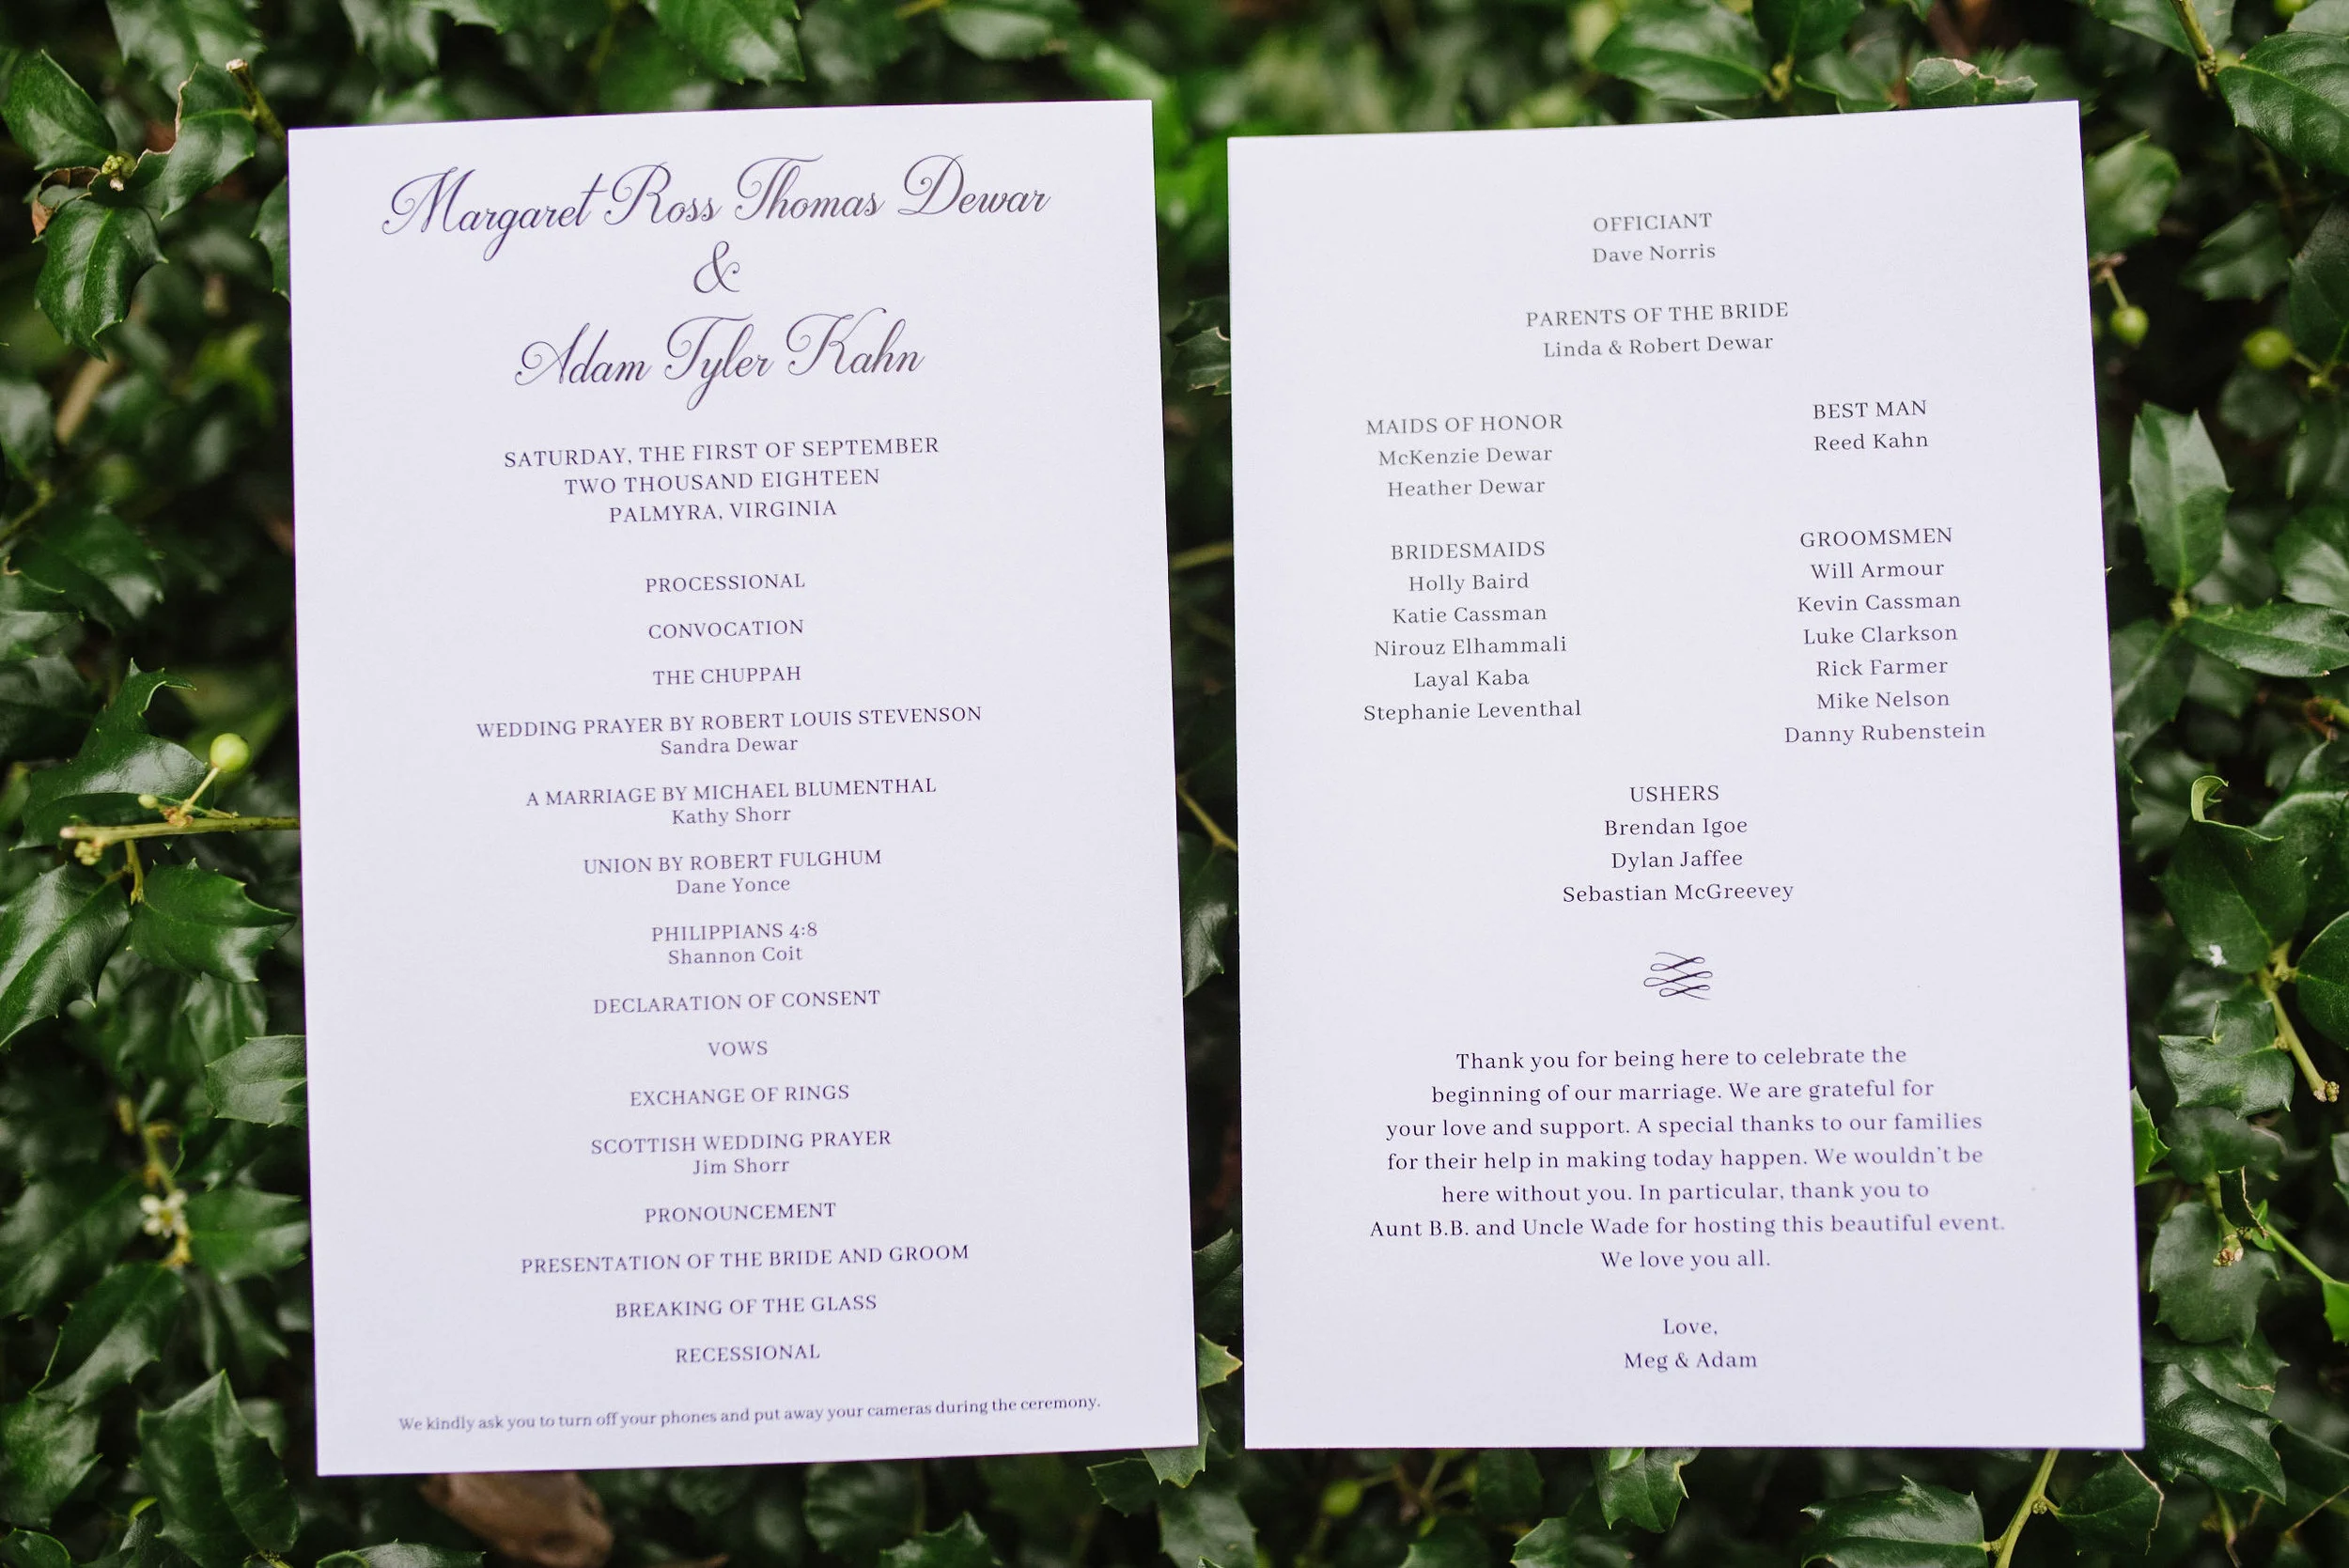 Margaret Ross Thomas Dewar
&
Adam Tyler Kahn
SATURDAY, THE FIRST OF SEPTEMBER
TWO THOUSAND EIGHTEEN
PALMYRA, VIRGINIA
PROCESSIONAL
CONVOCATION
THE CHUPPAH
WEDDING PRAYER BY ROBERT LOUIS STEVENSON
Sandra Dewar
A MARRIAGE BY MICHAEL BLUMENTHAL
Kathy Shorr
UNION BY ROBERT FULGHUM
Dane Yonce
PHILIPPIANS 4:8
Shannon Coit
DECLARATION OF CONSENT
VOWS
EXCHANGE OF RINGS
SCOTTISH WEDDING PRAYER
Jim Shorr
PRONOUNCEMENT
PRESENTATION OF THE BRIDE AND GROOM
BREAKING OF THE GLASS
RECESSIONAL
We kindly ask you to turn off your phones and put away your cameras during the ceremony.
OFFICIANT
Dave Norris
PARENTS OF THE BRIDE
Linda & Robert Dewar
MAIDS OF HONOR
McKenzie Dewar
Heather Dewar
BEST MAN
Reed Kahn
BRIDESMAIDS
Holly Baird
Katie Cassman
Nirouz Elhammali
Layal Kaba
Stephanie Leventhal
GROOMSMEN
Will Armour
Kevin Cassman
Luke Clarkson
Rick Farmer
Mike Nelson
Danny Rubenstein
USHERS
Brendan Igoe
Dylan Jaffee
Sebastian McGreevey
Thank you for being here to celebrate the
beginning of our marriage. We are grateful for
your love and support. A special thanks to our families
for their help in making today happen. We wouldn't be
here without you. In particular, thank you to
Aunt B.B. and Uncle Wade for hosting this beautiful event.
We love you all.
Love,
Meg & Adam